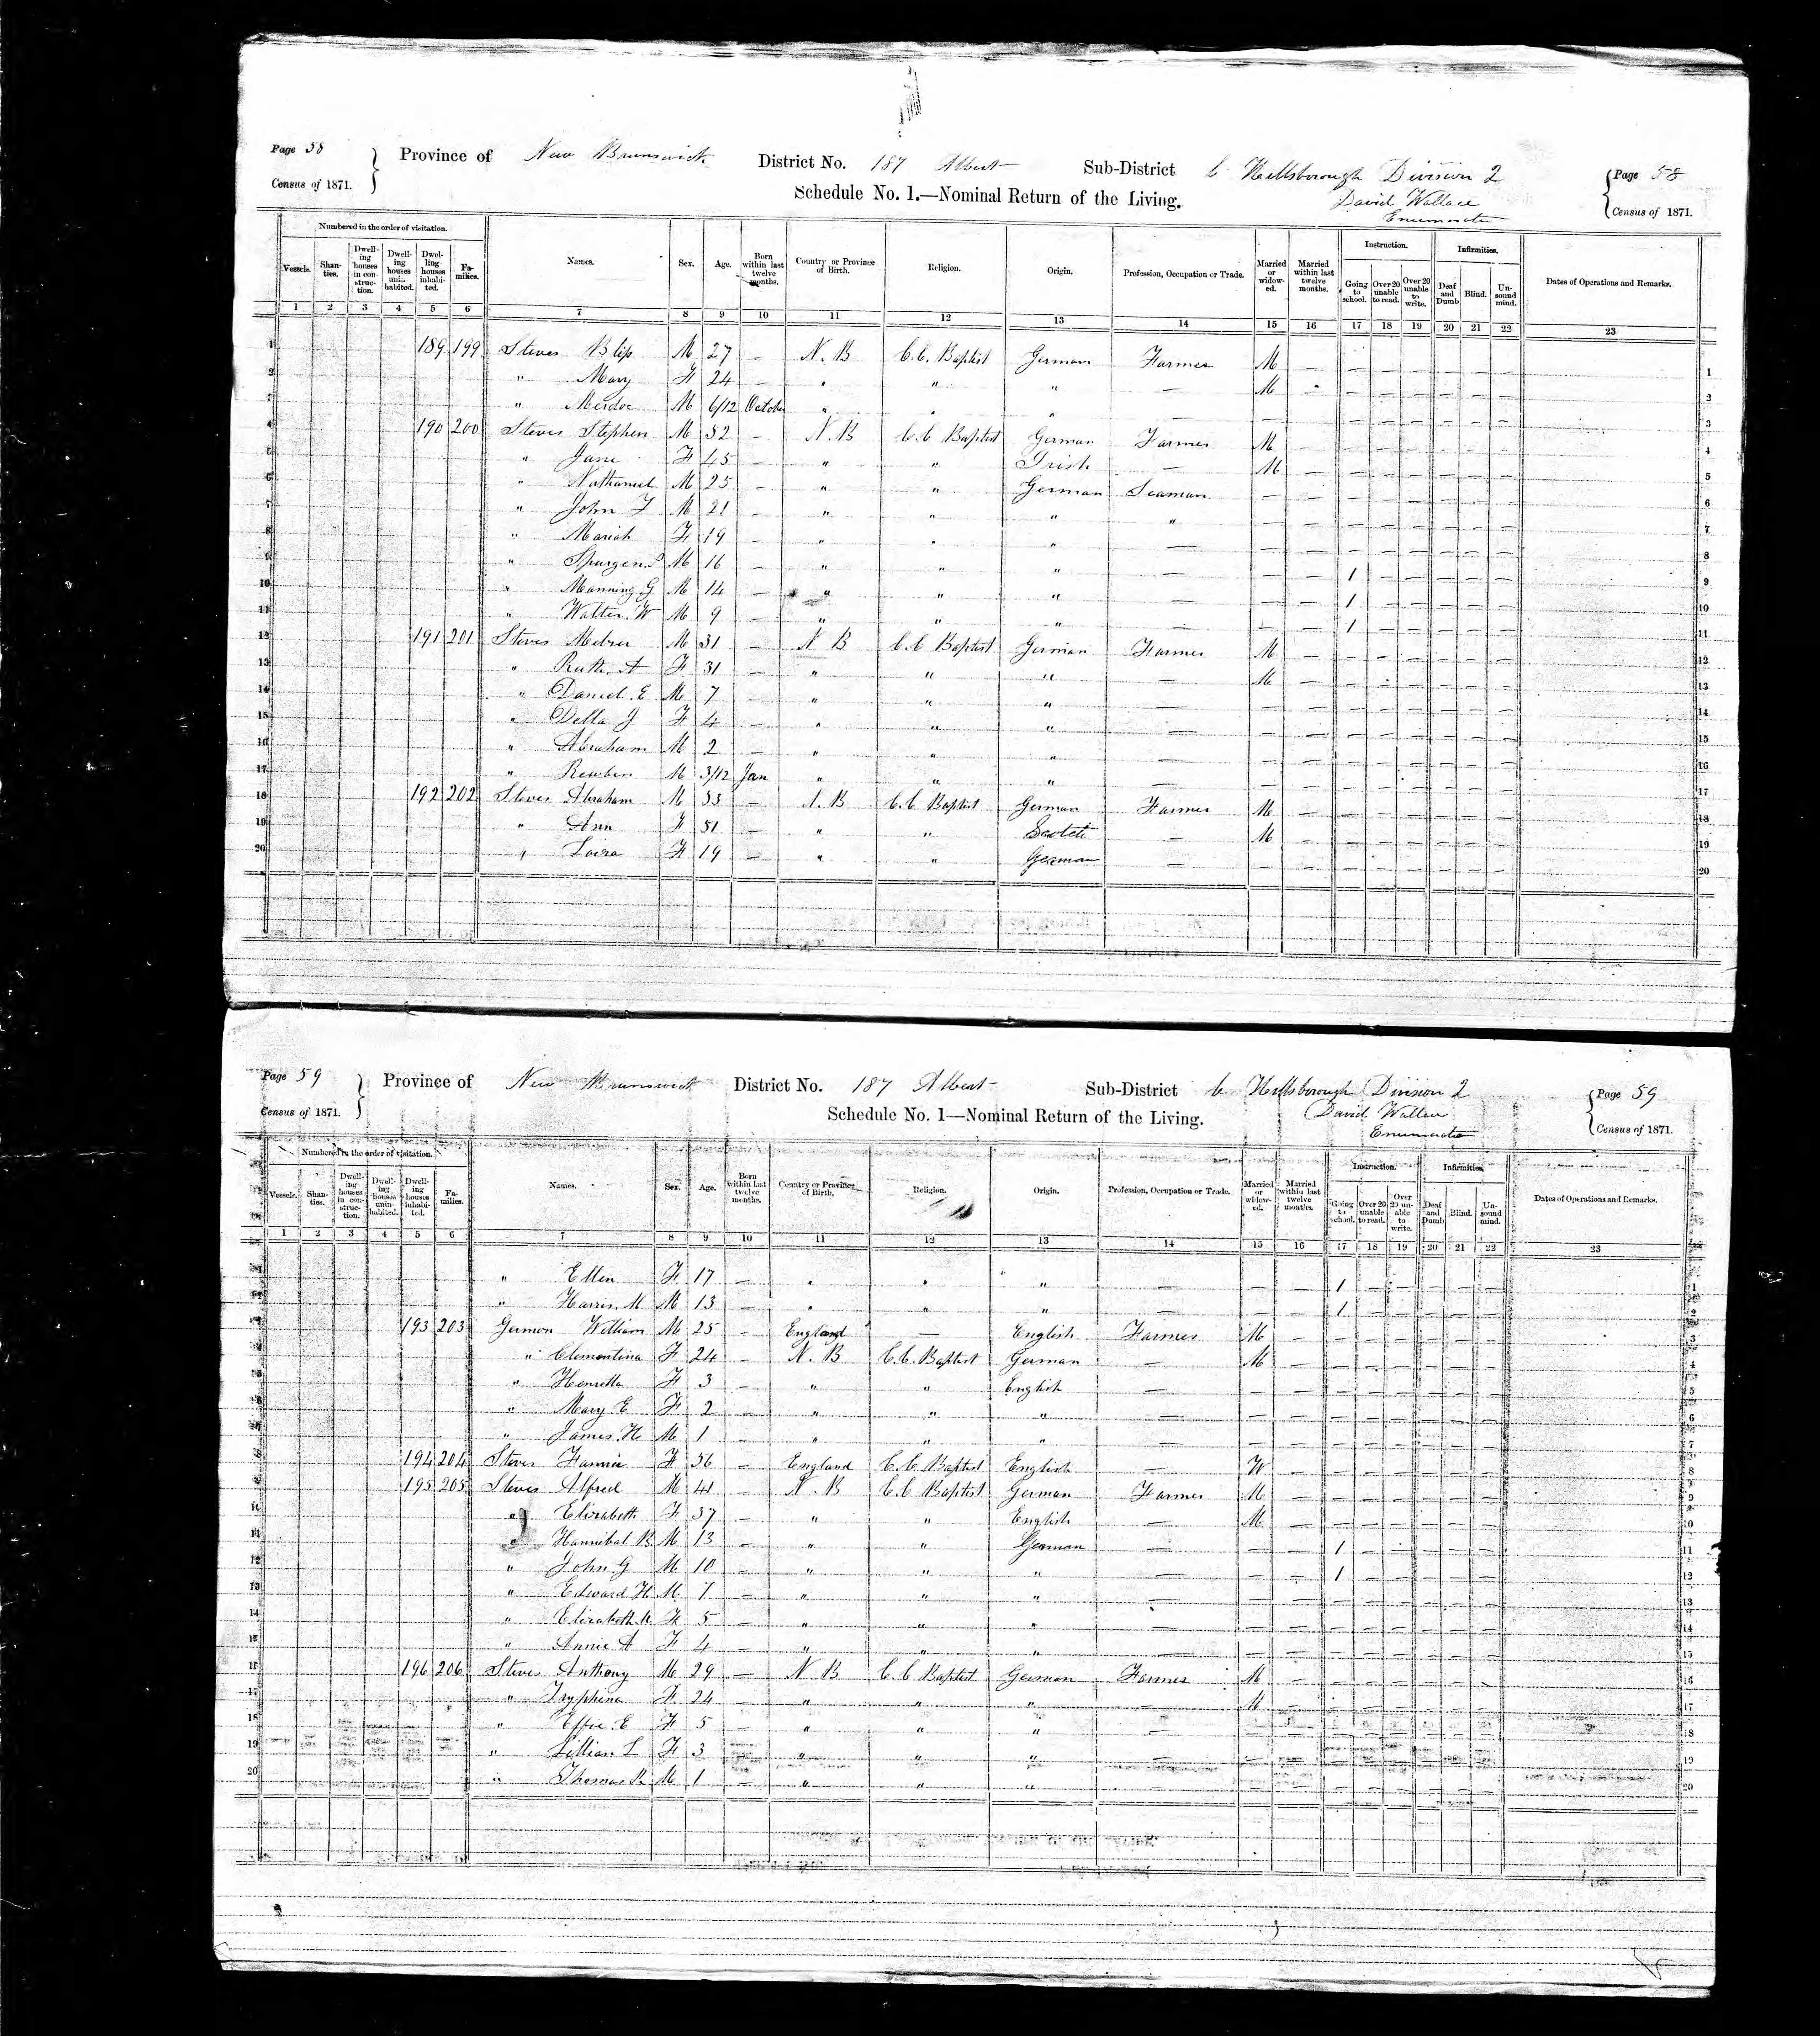 Page 58
Census of 1871.
Province of New Brunswick District No. 187 Albert Sub-District C Hillsborough Division 2
David Wallace
Enumerator
Page 58
Census of 1871.
Schedule No. 1.—Nominal Return of the Living.
Numbered in the order of visitation.
Vessels. Shan-ties. Dwell-ing houses in con-struc-tion. Dwell-ing houses unin-habited. Dwel-ling houses inhabi-ted. Fa-milies. Names. Sex. Age. Born within last twelve months. Country or Province of Birth. Religion. Origin. Profession, Occupation or Trade. Married or widow-ed. Married within last twelve months. Instruction. Going to school. Over 20 unable to read. Over 20 unable to write. Infirmities. Deaf and Dumb. Blind. Un-sound mind. Dates of Operations and Remarks.
1 2 3 4 5 6 7 8 9 10 11 12 13 14 15 16 17 18 19 20 21 22 23
1 189 199 Steves M 27 — N. B C.C. Baptist German Farmer M — — — — — — — 1
2 " Mary F 24 — " " " — M - — — — — — — 2
3 " M 6/12 October " " " — — — — — — — — 3
4 190 200 Steves Stephen M 52 — N. B C.C Baptist German Farmer M — — — — — — — 4
5 " Jane F 45 — " " Irish — M — — — — — — — 5
6 " Nathaniel M 25 — " " German Seaman — — — — — — — — 6
7 " John M 21 — " " " " — — — — — — — — 7
8 " Mariah F 19 — " " " — — — — — — — — — 8
9 " Spurgen M 16 — " " " — — — 1 — — — — — 9
10 " Manning G M 14 — " " " — — — 1 — — — — — 10
11 " Walter W M 9 — " " " — — — 1 — — — — — 11
12 191 201 Steves M 31 — N B C.C Baptist German Farmer M — — — — — — — 12
13 " Ruth A F 31 — " " " — M — — — — — — — 13
14 " Daniel E M 7 — " " " — — — — — — — — — 14
15 " Della J F 4 — " " " — — — — — — — — — 15
16 " Abraham M 2 — " " " — — — — — — — — — 16
17 " Reuben M 3/12 Jan " " " — — — — — — — — — 17
18 192 202 Steves Abraham M 53 — N. B C.C Baptist German Farmer M — — — — — — — 18
19 " Ann F 51 — " " Scotch — M — — — — — — — 19
20 " F 19 — " " German — — — — — — — — — 20
Page 59
Census of 1871.
Province of New Brunswick District No. 187 Albert Sub-District C Hillsborough Division 2
David Wallace
Enumerator
Page 59
Census of 1871.
Schedule No. 1—Nominal Return of the Living.
Numbered in the order of visitation.
Vessels. Shan-ties. Dwell-ing houses in con-struc-tion. Dwell-ing houses unin-habited. Dwell-ing houses inhabi-ted. Fa-milies. Names. Sex. Age. Born within last twelve months. Country or Province of Birth. Religion. Origin. Profession, Occupation or Trade. Married or widow-ed. Married within last twelve months. Instruction. Going to school. Over 20 unable to read. Over 20 un-able to write. Infirmities. Deaf and Dumb Blind. Un-sound mind. Dates of Operations and Remarks.
1 2 3 4 5 6 7 8 9 10 11 12 13 14 15 16 17 18 19 20 21 22 23
" Ellen F 17 — " " " — — — 1 — — — — — 1
" Harris M M 13 — " " " — — — 1 — — — — — 2
193 203 Germon William M 25 — England — English Farmer M — — — — — — — 3
" Clementina F 24 — N. B C.C. Baptist German — M — — — — — — — 4
" Henrella F 3 — " " English — — — — — — — — — 5
" Mary E F 2 — " " " — — — — — — — — — 6
" James H M 1 — " " " — — — — — — — — — 7
194 204 Steves Fannie F 56 — England C.C Baptist English — W — — — — — — — 8
195 205 Steves Alfred M 41 — N. B C.C Baptist German Farmer M — — — — — — — 9
" Elizabeth F 37 — " " English — M — — — — — — — 10
" Hannibal B M 13 — " " German — — — 1 — — — — — 11
12 " John G M 10 — " " " — — — 1 — — — — — 12
13 " Edward H M 7 — " " — — — — — — — — — 13
14 " Elizabeth F 5 — " " " — — — — — — — — — 14
15 " Annie A F 4 — " " " — — — — — — — — — 15
196 206 Steves Anthony M 29 — N B C.C Baptist German Farmer M — — — — — — — 16
17 " Tryphena F 24 — " " " — M — — — — — — — 17
18 " Effie E F 5 — " " " — — — — — — — — — 18
19 " Lillian F 3 — " " " — — — — — — — — — 19
20 " Thomas M 1 — " " " — — — — — — — — — 20